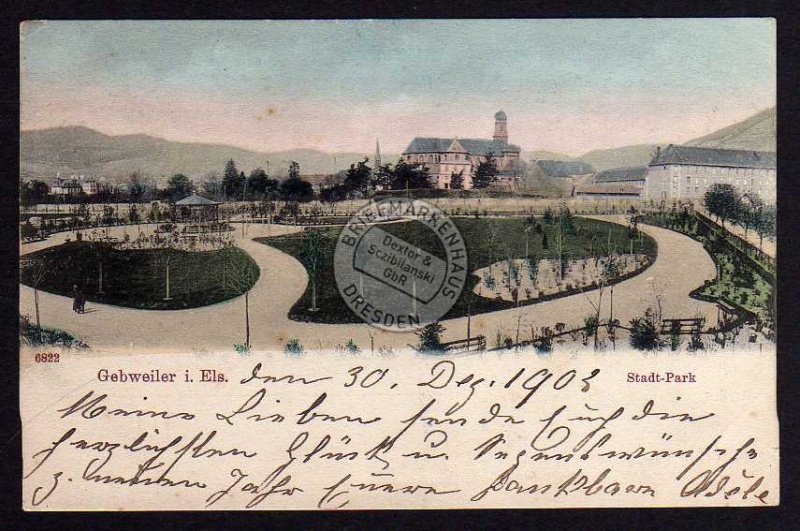 BRIEFMARKENHAUS
Dextor &
Sczibilanski
GbR
DRESDEN
6822
Gebweiler i. Els. den 30. Dez. 1903
Stadt-Park
Meine Lieben sende Euch die
herzlichsten Glück u. Segenswünsche
z. neuen Jahr Euere dankbare Adèle